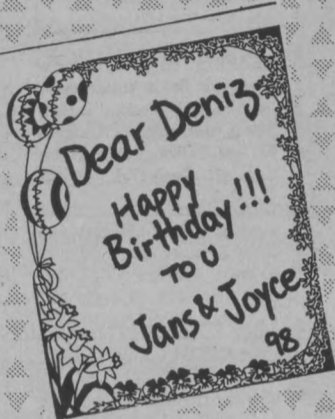 Dear Deniz
Happy
Birthday!!!
TO U
Jans & Joyce
98